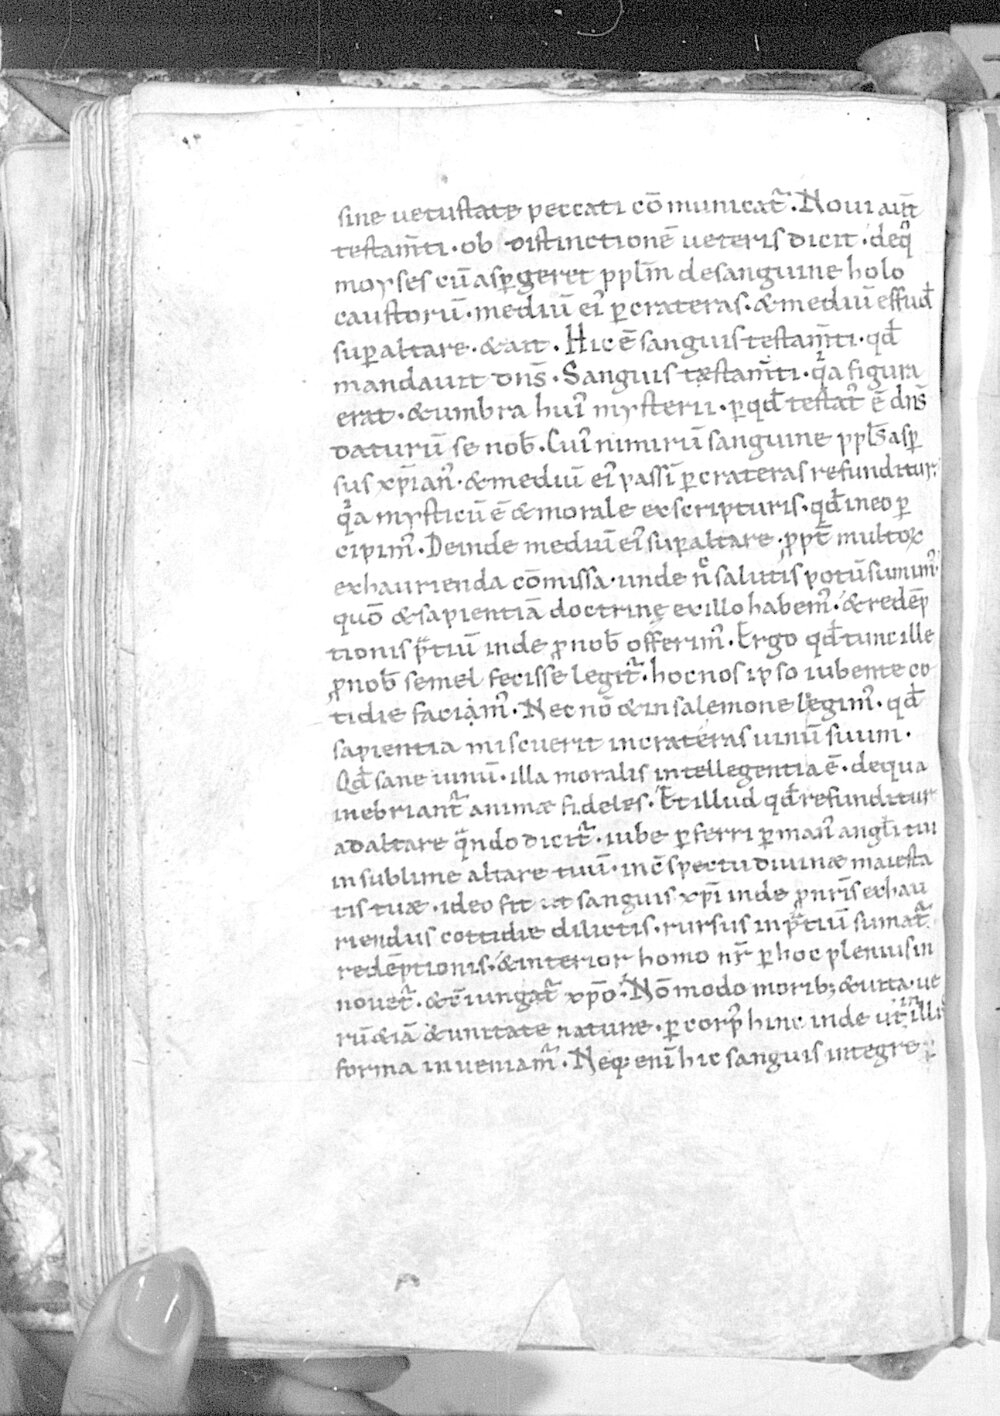 sine uetustate peccati cōmunicat᷑. Noui aut̄
testam̄ti. ob distinctionē ueteris dicit. deq͛
moyses cū aspergeret ppl̄m desanguine holo
caustorū. mediū eiꝰ ꝑcrateras. & mediū effud̄
suꝑaltare. & ait. Hic ē sanguis testam̄ti. qd̄
mandauit dn̄s. Sanguis tæstam̄ti. qͣa figura
erat. & umbra huiꝰ mysterii. ꝑqd̄ testat᷑ ē dn̄s
daturū se nob̄. Cuiꝰ nimirū sanguine ppl̄s asꝑ
sus xp̄ianꝰ. & mediū eiꝰ passī ꝑcrateras refunditur.
qͣa mysticū ē & morale exscripturis. qd̄ ineo ꝑ
cipimꝰ. Deinde mediū eiꝰ suꝑaltare. ꝓpt̄ multoꝝ
exhaurienda cōmissa. unde nͨ salutis potū sumimꝰ.
quō & sapientiā doctrinę exillo habemꝰ. & redēp
tionis p̄tiū inde ꝓnob̄ offerimꝰ. Ergo qd̄ tunc ille
ꝓnob̄ semel fecisse legit᷑. hoc nos ipso iubente co
tidie faciamꝰ. Nec nō & insalemone legimꝰ. qd̄
sapientia miscuerit incrateras uinū suum.
Qd̄ sane uinū. illa moralis intellegentia ē. dequa
inebriant᷑ animæ fideles. Et illud qd̄ refunditur
adaltare qͣndo dicit᷑. iube ꝑferri ꝑmanꝰ angl̄i tui
insublime altare tuū. inc̄spectu diuinæ maiesta
tis tuæ. ideo fit ut sanguis xp̄i inde ꝓnr̄is exhau
riendus cottidie dilictis. rursus inp̄tiū sumat᷑
redēptionis. & interior homo nr̄ ꝑhoc plenius in
nouet᷑. & c̄iungat᷑ xp̄o. Nō modo morib; & uita. ue
rū &iā & unitate nature. ꝑcorpꝰ hinc inde
forma inueniam᷑. Neq; enī hic sanguis integre ꝑ